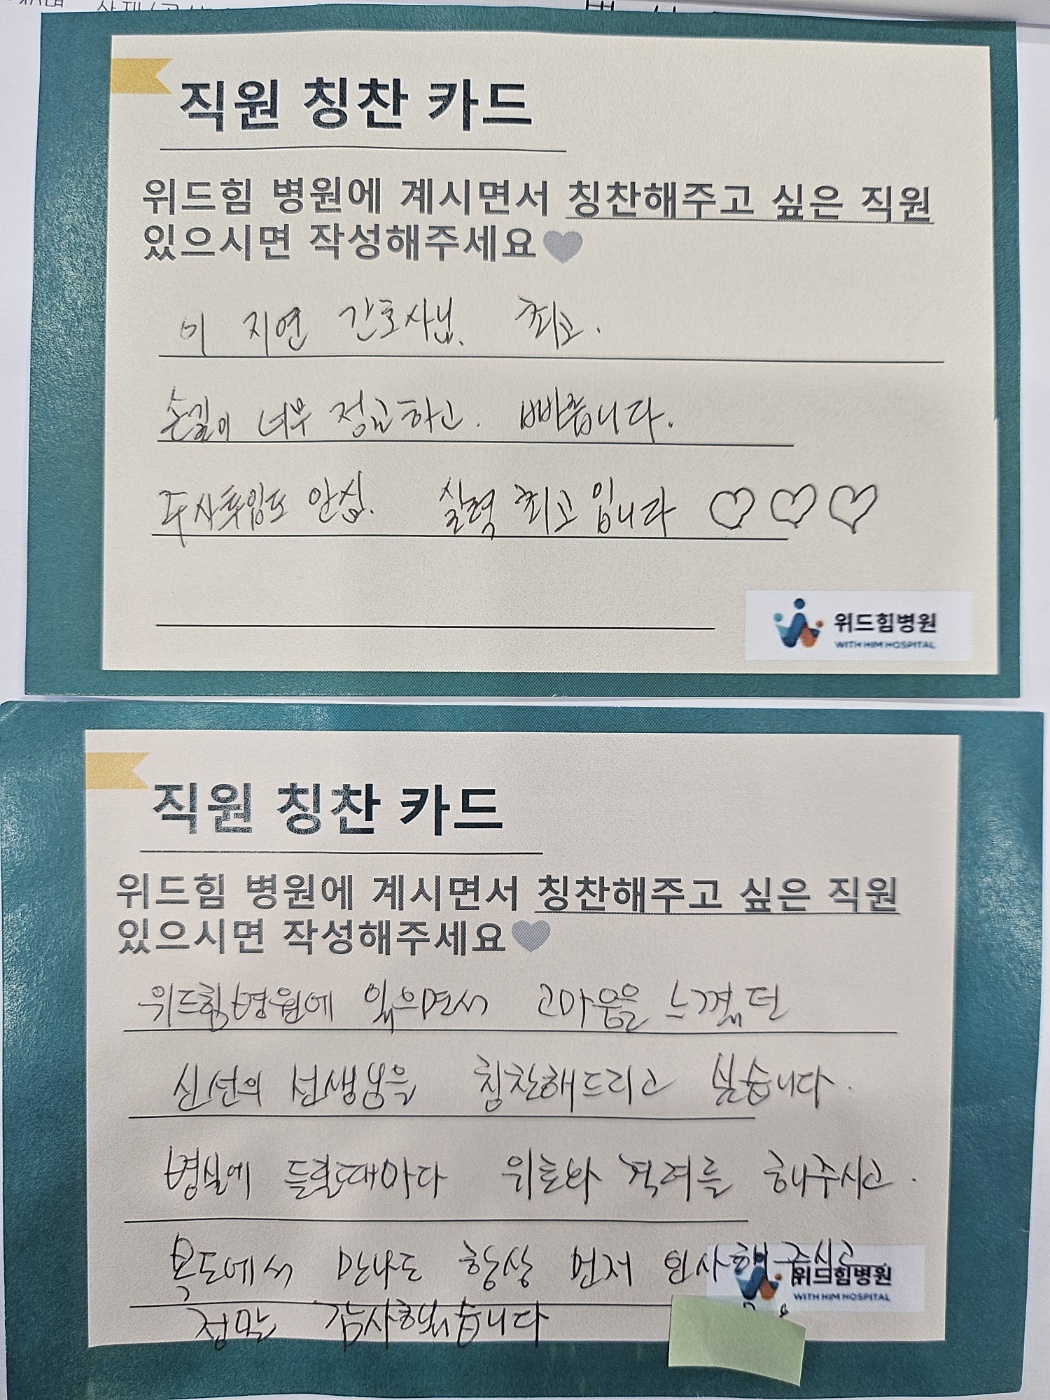 직원 칭찬 카드
위드힘 병원에 계시면서 칭찬해주고 싶은 직원
있으시면 작성해주세요
이 지연 간호사님. 최고.
손길이 너무 정교하고. 빠릅니다.
주사후임도 안심. 실력 최고입니다 ♡♡♡
위드힘병원
WITH HIM HOSPITAL
직원 칭찬 카드
위드힘 병원에 계시면서 칭찬해주고 싶은 직원
있으시면 작성해주세요
위드힘병원에 있으면서 고마움을 느꼈던
신선의 선생님을 칭찬해드리고 싶습니다.
병실에 들릴때마다 위로와 격려를 해주시고.
복도에서 만나도 항상 먼저 인사해 주시고
위드힘병원
WITH HIM HOSPITAL
정말 감사했습니다